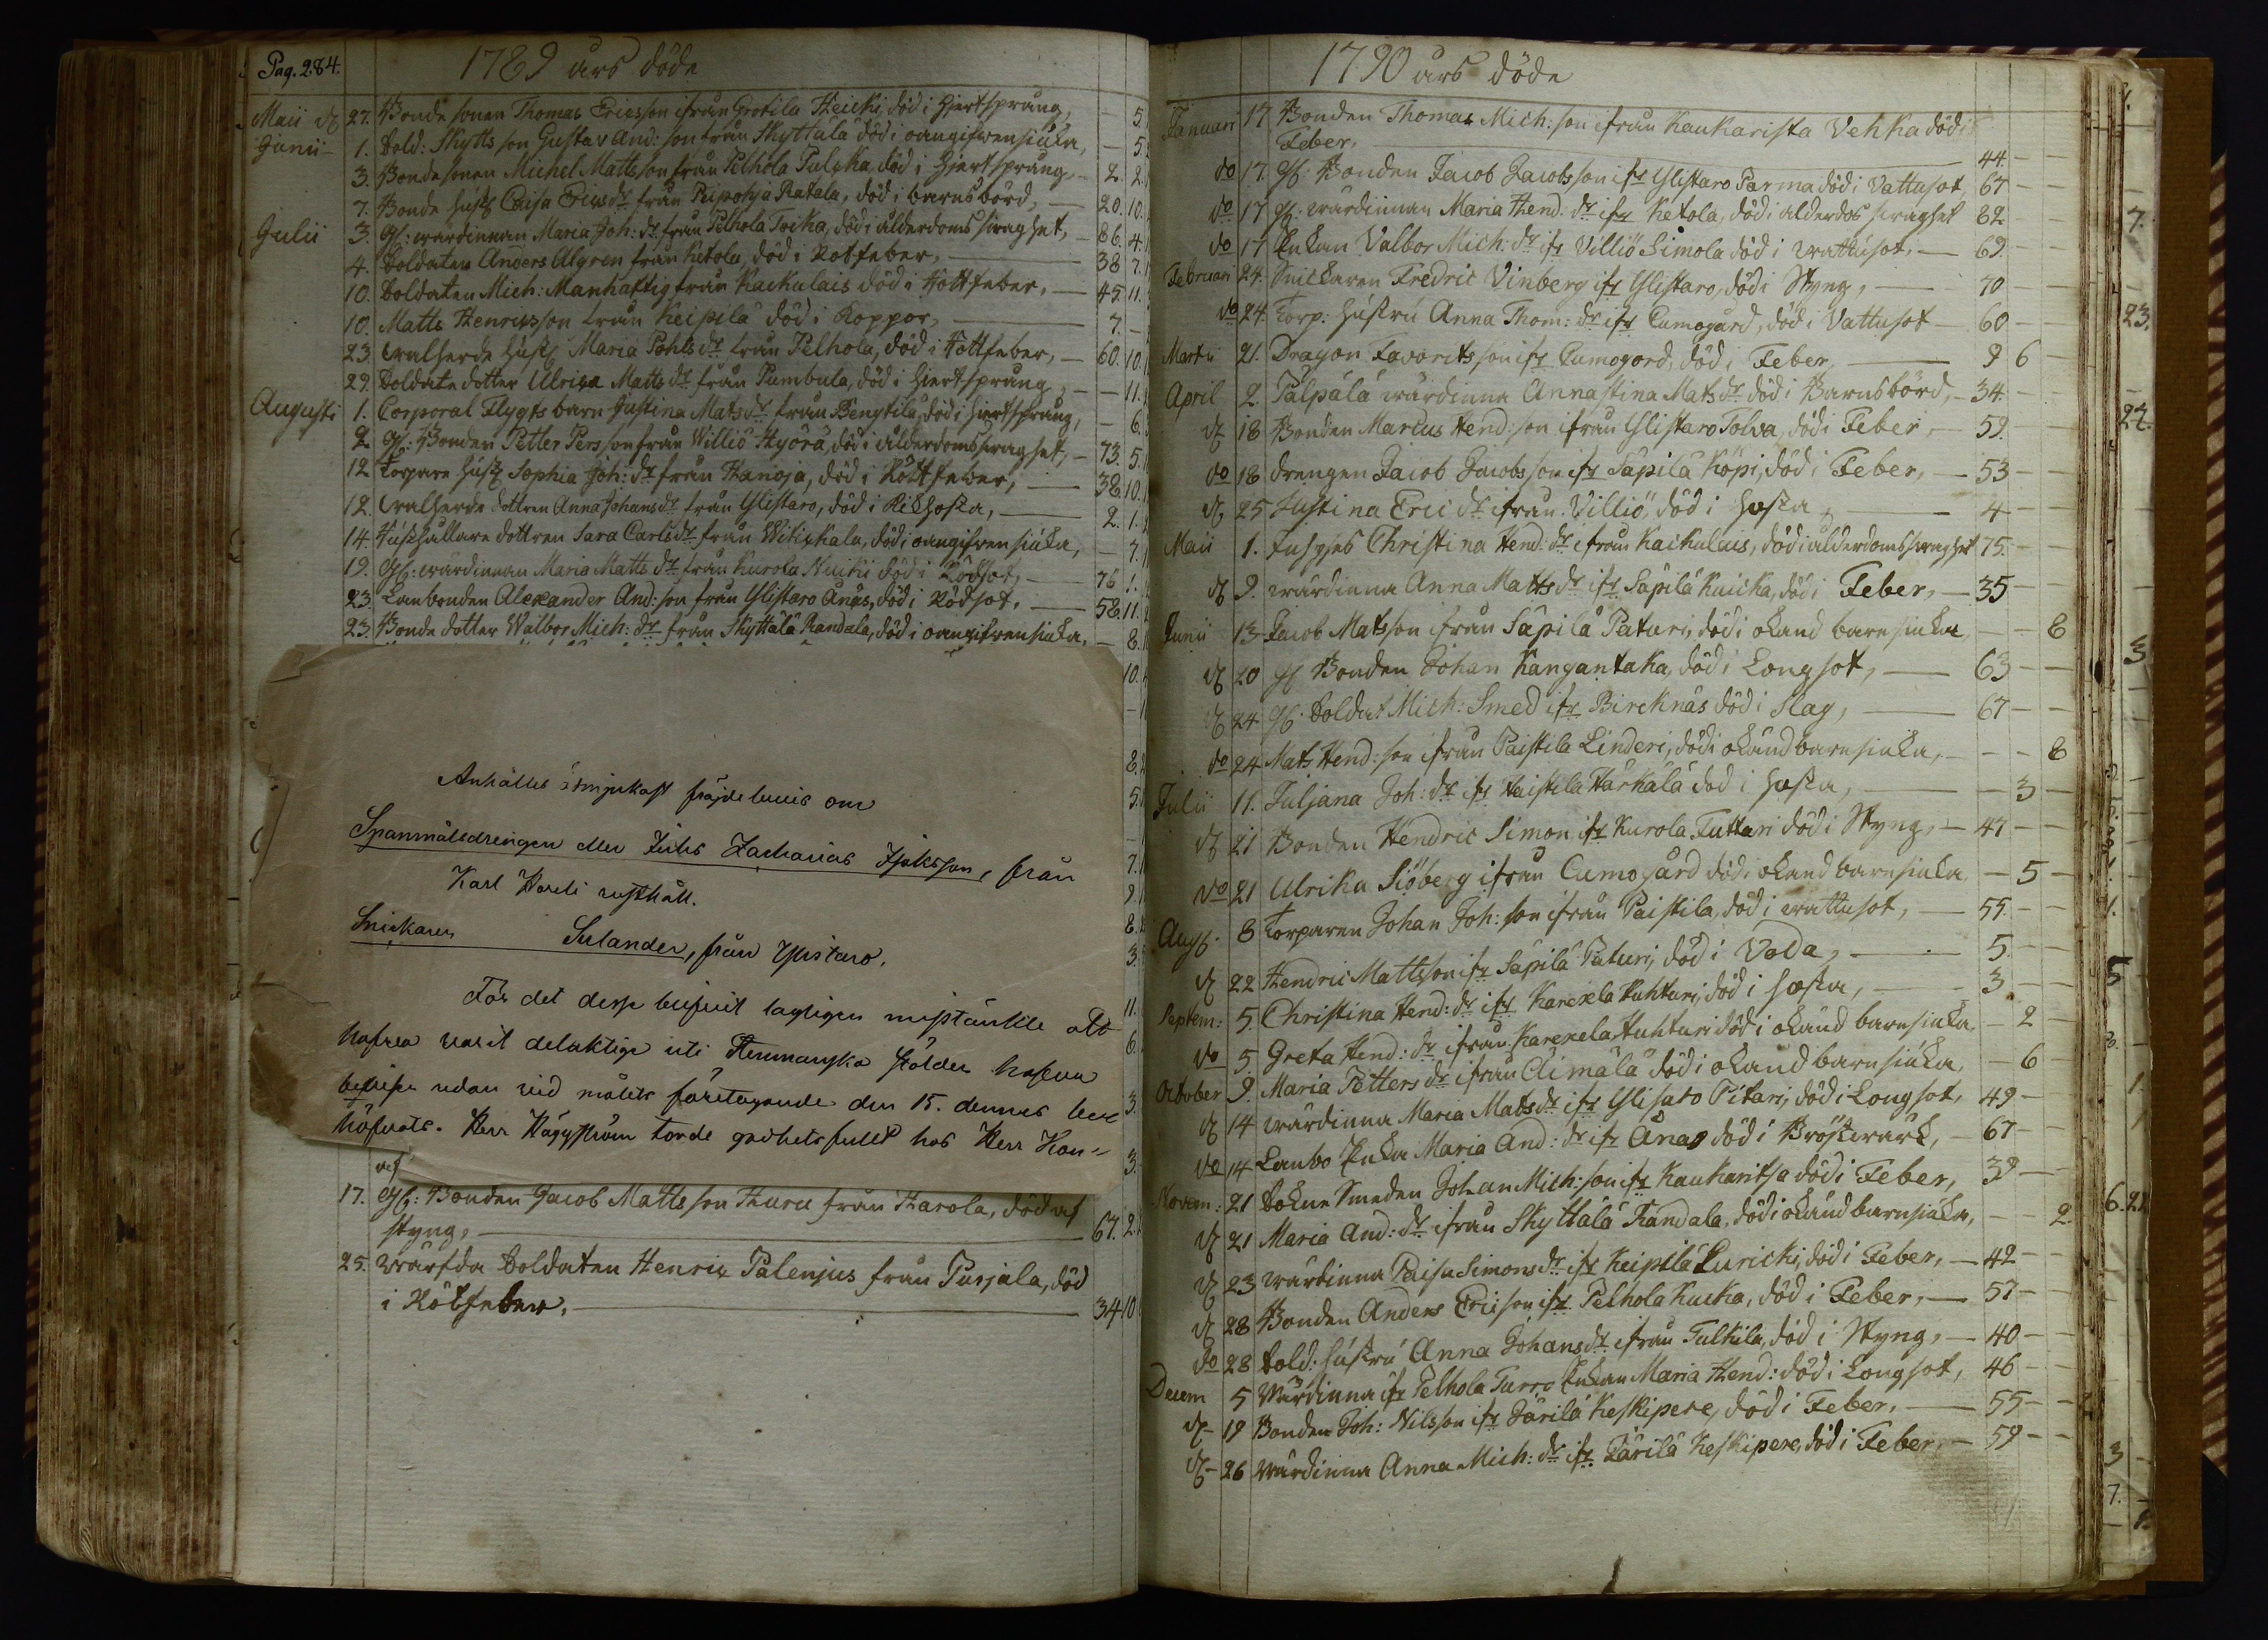 Pag. 284.
1789 års döde
Maii d 27. Bonde sonen Thomas Ericsson ifrån Grotila Heicki, död i hjertsprång, — 5.
Junii 1. Sold: Skytts son Gustav And: son från Skyttälä död i oangifven siuka, — 5.
3. Bonde sonen Michel Matts son från Pelhola död i Hjertsprång, 2. 2.
7. Bonde hust Caisa Erics dr från Peipohja Ratala, död i barnsbörd, — 20. 10.
Julii 3. Gl: wärdinnan Maria Joh: dr från Pelhola död i ålderdoms swaghet, — 86. 4.
4. Soldaten Anders Algren från Ketola, död i Rötfeber, — 38 7.
10. Soldaten Mich: Manhaftig från Kackulais död i Röttfeber, — 45. 11.
10. Matts Henricsson från Keipilä död i Koppor, — 7. —
23. walherde hust Maria från Pelhola, död i Röttfeber, — 60. 10.
29. Soldate dotter Ulrica Matts dr från Pumbula, död i hjertsprång, — 11.
Augusti 1. Corporal Flygts barn Justina Mats dr från Bengtilä, död i hjertsprång, — 6.
2. Gl: Bonden Petter Pers son från Williö Hyörä, död i ålderdoms swaghet, — 73. 5.
12 Torpare hust Sophia Joh: dr från Hanoja, död i Röttfeber, — 38. 10.
12. walherde dottren Anna Johans dr från Ylistaro, död i Kikhosta, — 2. 1.
14. Hushållare dottren Sara Carls dr från Witikkala, död i oangifven siuka, — 7.
19. Gl: wärdinnan Maria Matts dr från Kurola död i Rödsot, — 76 1.
23. Lanbonden Alexander And: son från Ylistaro Anäs, död i Rödsot, — 58. 11.
23. Bonde dotter Walbor Mich: dr från Skyttälä Randala, död i oangifven siuka, — 8.
Anhålles ödmjukast fräjdebevis om
Spanmålsdrengen eller Zacharias Isaksson, från
Karl Hareli rusthåll.
Snickaren Selander, från Ylistaro.
För det desse blifvit lagligen misstänkte att
hafva varit delaktige uti stölden
vid målets företagande den 15. dennes
höfvats. Herr Häggström torde godhetsfullt hos Herr Kon-
17. Gl: Bonden Jacob Matts son från Harola, död af
styng, — 67. 2.
25. wärfda Soldaten Henric Palenius från Pusjala, död
i Rötfeber, — 34 10
1790 års döde
Januari 17 Bonden Thomas Mich: son ifrån Kaukarista Vehka död i
Feber, — 44 — —
do 17. Gl: Bonden Jacob Jacobsson ifr Ylistaro Parma död i Vattusot, 67 — —
do 17 Gl: wärdinnan Maria Hend: dr ifr Ketola, död i alderdos swaghet 82 — —
do 17 Enkan Valbor Mich: dr ifr Villiö Simola död i wattusot, — 69. — —
Februari 24. Snickaren Fredric Vinberg ifr Ylistaro, död i Styng, — 70 — —
do 24. Torp: hustru Anna Thom: dr ifr Cumogård, död i Vattusot — 60 — —
Martii 21. Dragon Favorits son ifr Cumogord, död i Feber, — 9 6 —
April 2. Pälpälä wärdinna Annastina Mats dr död i Barnsbörd, — 34 — —
d 18 Bonden Marcus Hend: son ifrån Ylistaro Tolva, död i Feber, — 59. — —
do 18 drengen Jacob Jacobs son ifr Säpilä Köpi, död i Feber, — 53 — —
d 25 Justina Eric dr ifrån Villiö död i hosta, — 4 — —
Maii 1. Inhyses Christina Hend: dr ifrån Kackulais, död i alderdoms swaghet 75. — —
d 9. wärdinna Anna Matts dr ifr Säpilä Kuicka, död i Feber, — 35 — —
Junii 13 Jacob Matsson ifrån Säpilä Paturi, död i okänd barnsiuka — — 8
d 20 Gl Bonden Johan Kangantaka, död i Longsot, — 63 — —
d 24 Gl: Soldat Mich: Smed ifr Bircknäs död i Slag, — 67 — —
do 24 Mats Hend: son ifrån Paistila Linderi, död i okänd barnsiuka, — — 8
Julii 11. Juljana Joh: dr ifr Haistila Härkälä död i hosta, — 3 —
d 21 Bonden Hendric Simon ifr Kurola Tuttari död i Styng, — 47 — —
do 21 Ulrika Siöberg ifrån Cumogård död i okänd barnsiuka — 5 —
Aug: 8 Torparen Johan Joh: son ifrån Paistila, död i wattusot, — 55. — —
d 22 Hendric Mattsson ifr Säpilä Paturi, död i Våda, — 5. — —
Septem: 5. Christina Hend: dr ifr Karexela Huhtari, död i hosta, — 3 — —
do 5. Greta Hend: dr ifrån Karexela Huhtari död i okänd barnsiuka, — 2 —
October 9. Maria Petters dr ifrån Äimälä död i okänd barnsiuka, — 6 —
d 14 wärdinna Maria Mats dr ifr Ylistaro Pitari, död i Longsot, 49 — —
do 14 Lanbo Enka Maria And: dr ifr Ånäs död i Bröstwärk, — 67 — —
Novem: 21 Sokne Smeden Johan Mich: son ifr Kaukaritsa död i Feber, 39 — —
d 21 Maria And: dr ifrån Skyttälä Randala, död i okänd barnsiuka, — — 2.
d 23 wärdinna Caisa Simons dr ifr Keipilä Luricki, död i Feber, — 42 — —
d 28 Bonden Anders Ericson ifr Pelhola Kucka, död i Feber, — 57 — —
do 28 Sold: hustru Anna Johans dr ifrån Tulkila, död i Styng, — 40 — —
Decem 5 Wärdinna ifr Pelhola Turro Enkan Maria Hend: död i Longsot, 46 — —
d 19 Bonden Joh: Nilsson ifr Järilä Keskipere, död i Feber, — 55 — —
d 26 Wärdinna Anna Mich: dr ifr Järilä Keskipere, död i Feber, — 59 — —